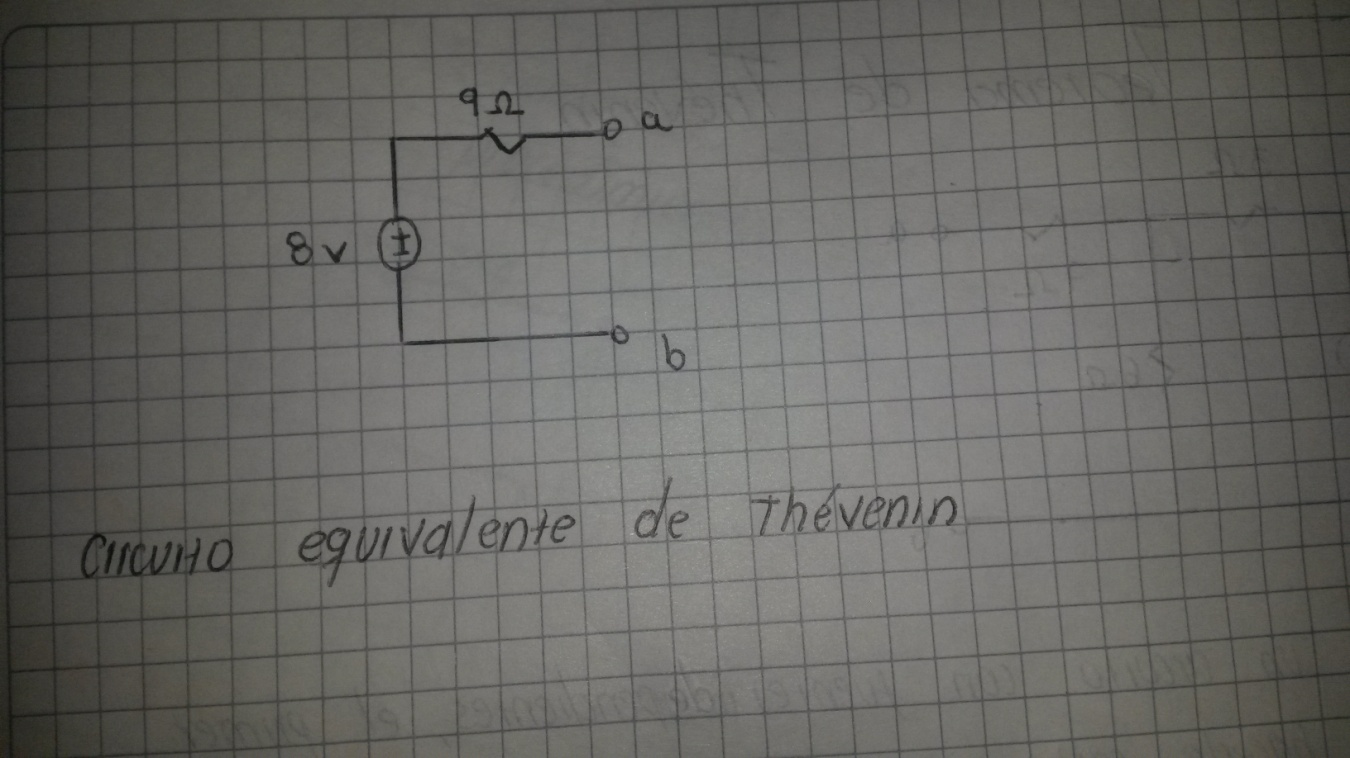 9 Ω
a
8 v
b
Circuito equivalente de Thévenin